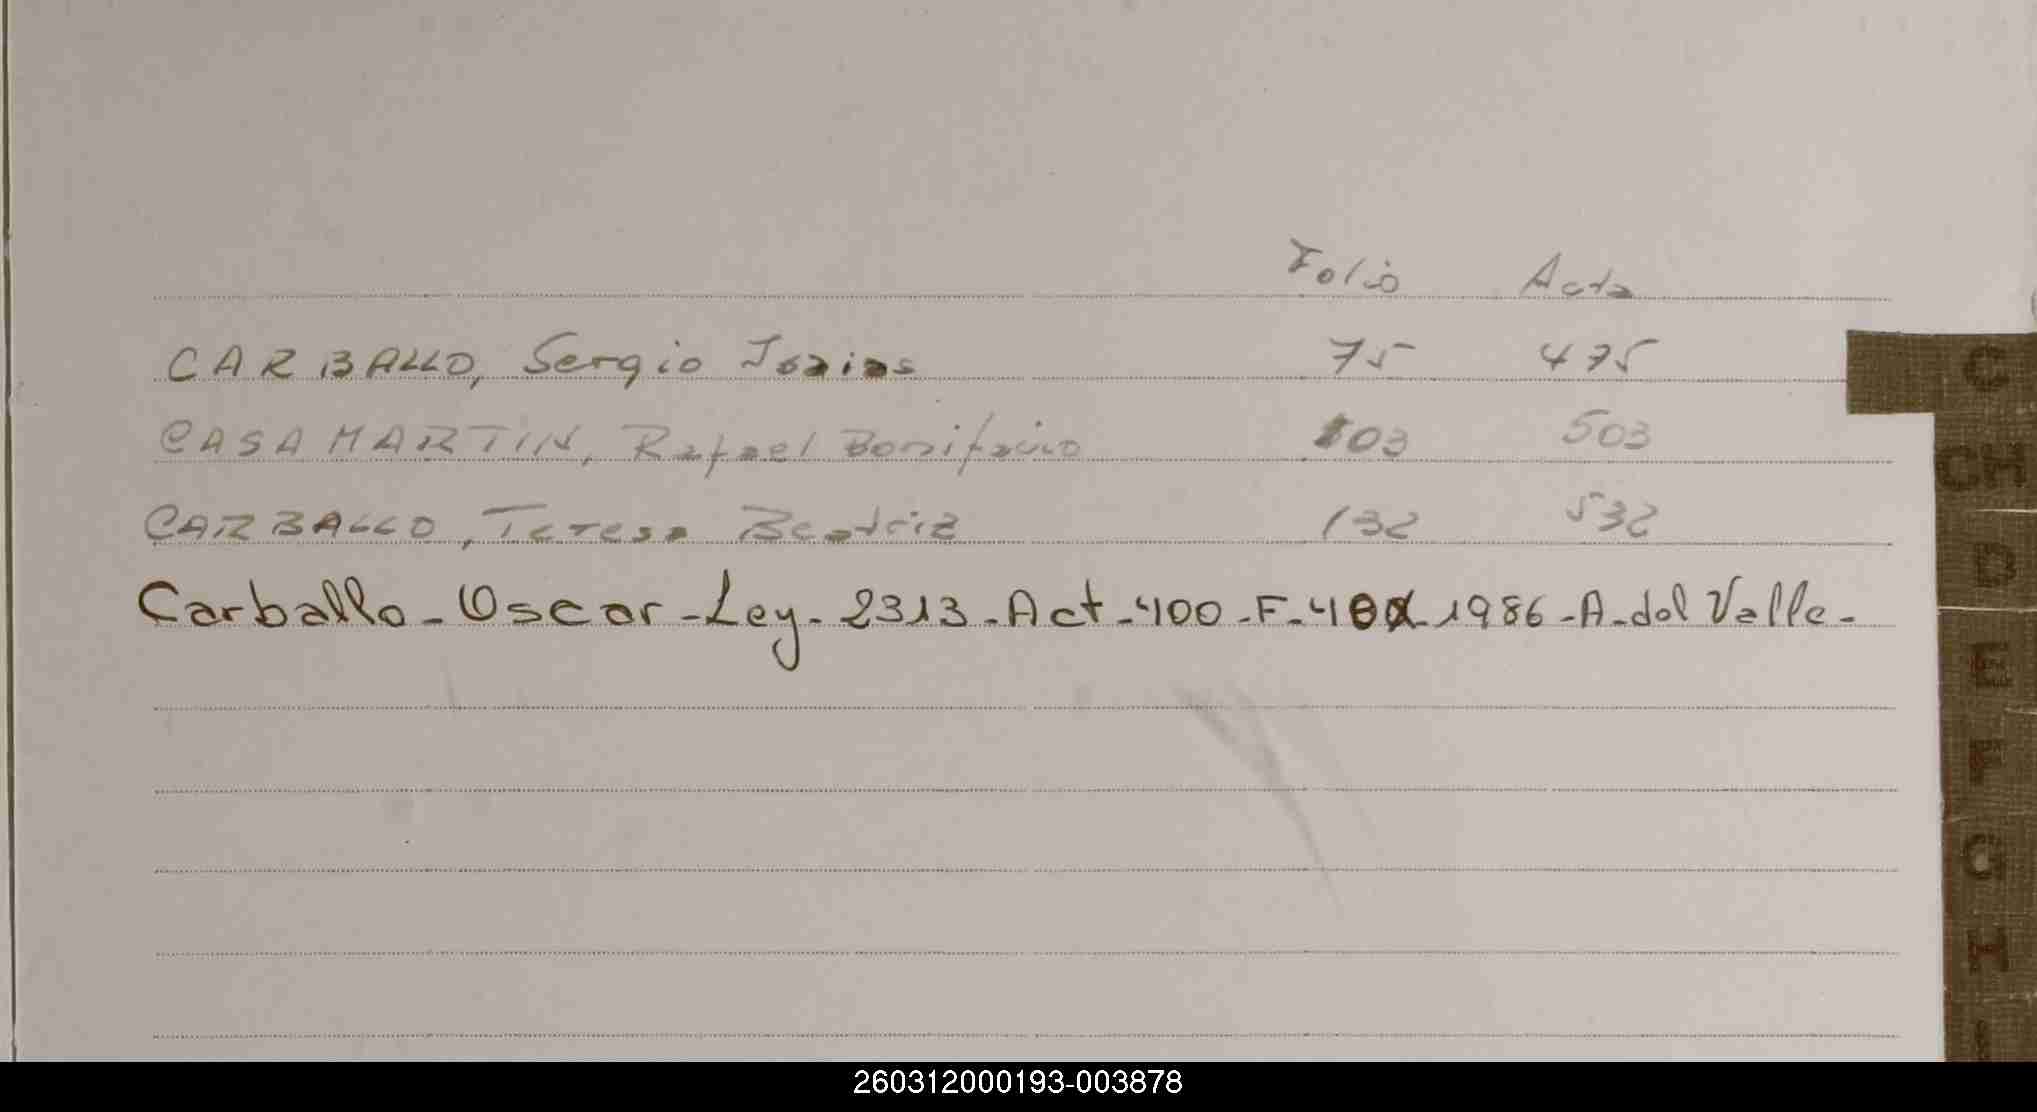 Folio Acta
CARBALLO, Sergio Isaias 75 475
CASAMARTIN, Rafael Bonifacio 103 503
CARBALLO, Teresa Beatriz 132 532
Carballo - Oscar - Ley - 2313 - Act - 400 - F - 1986 - A - del Valle -
C
CH
D
E
F
G
H
I
260312000193-003878